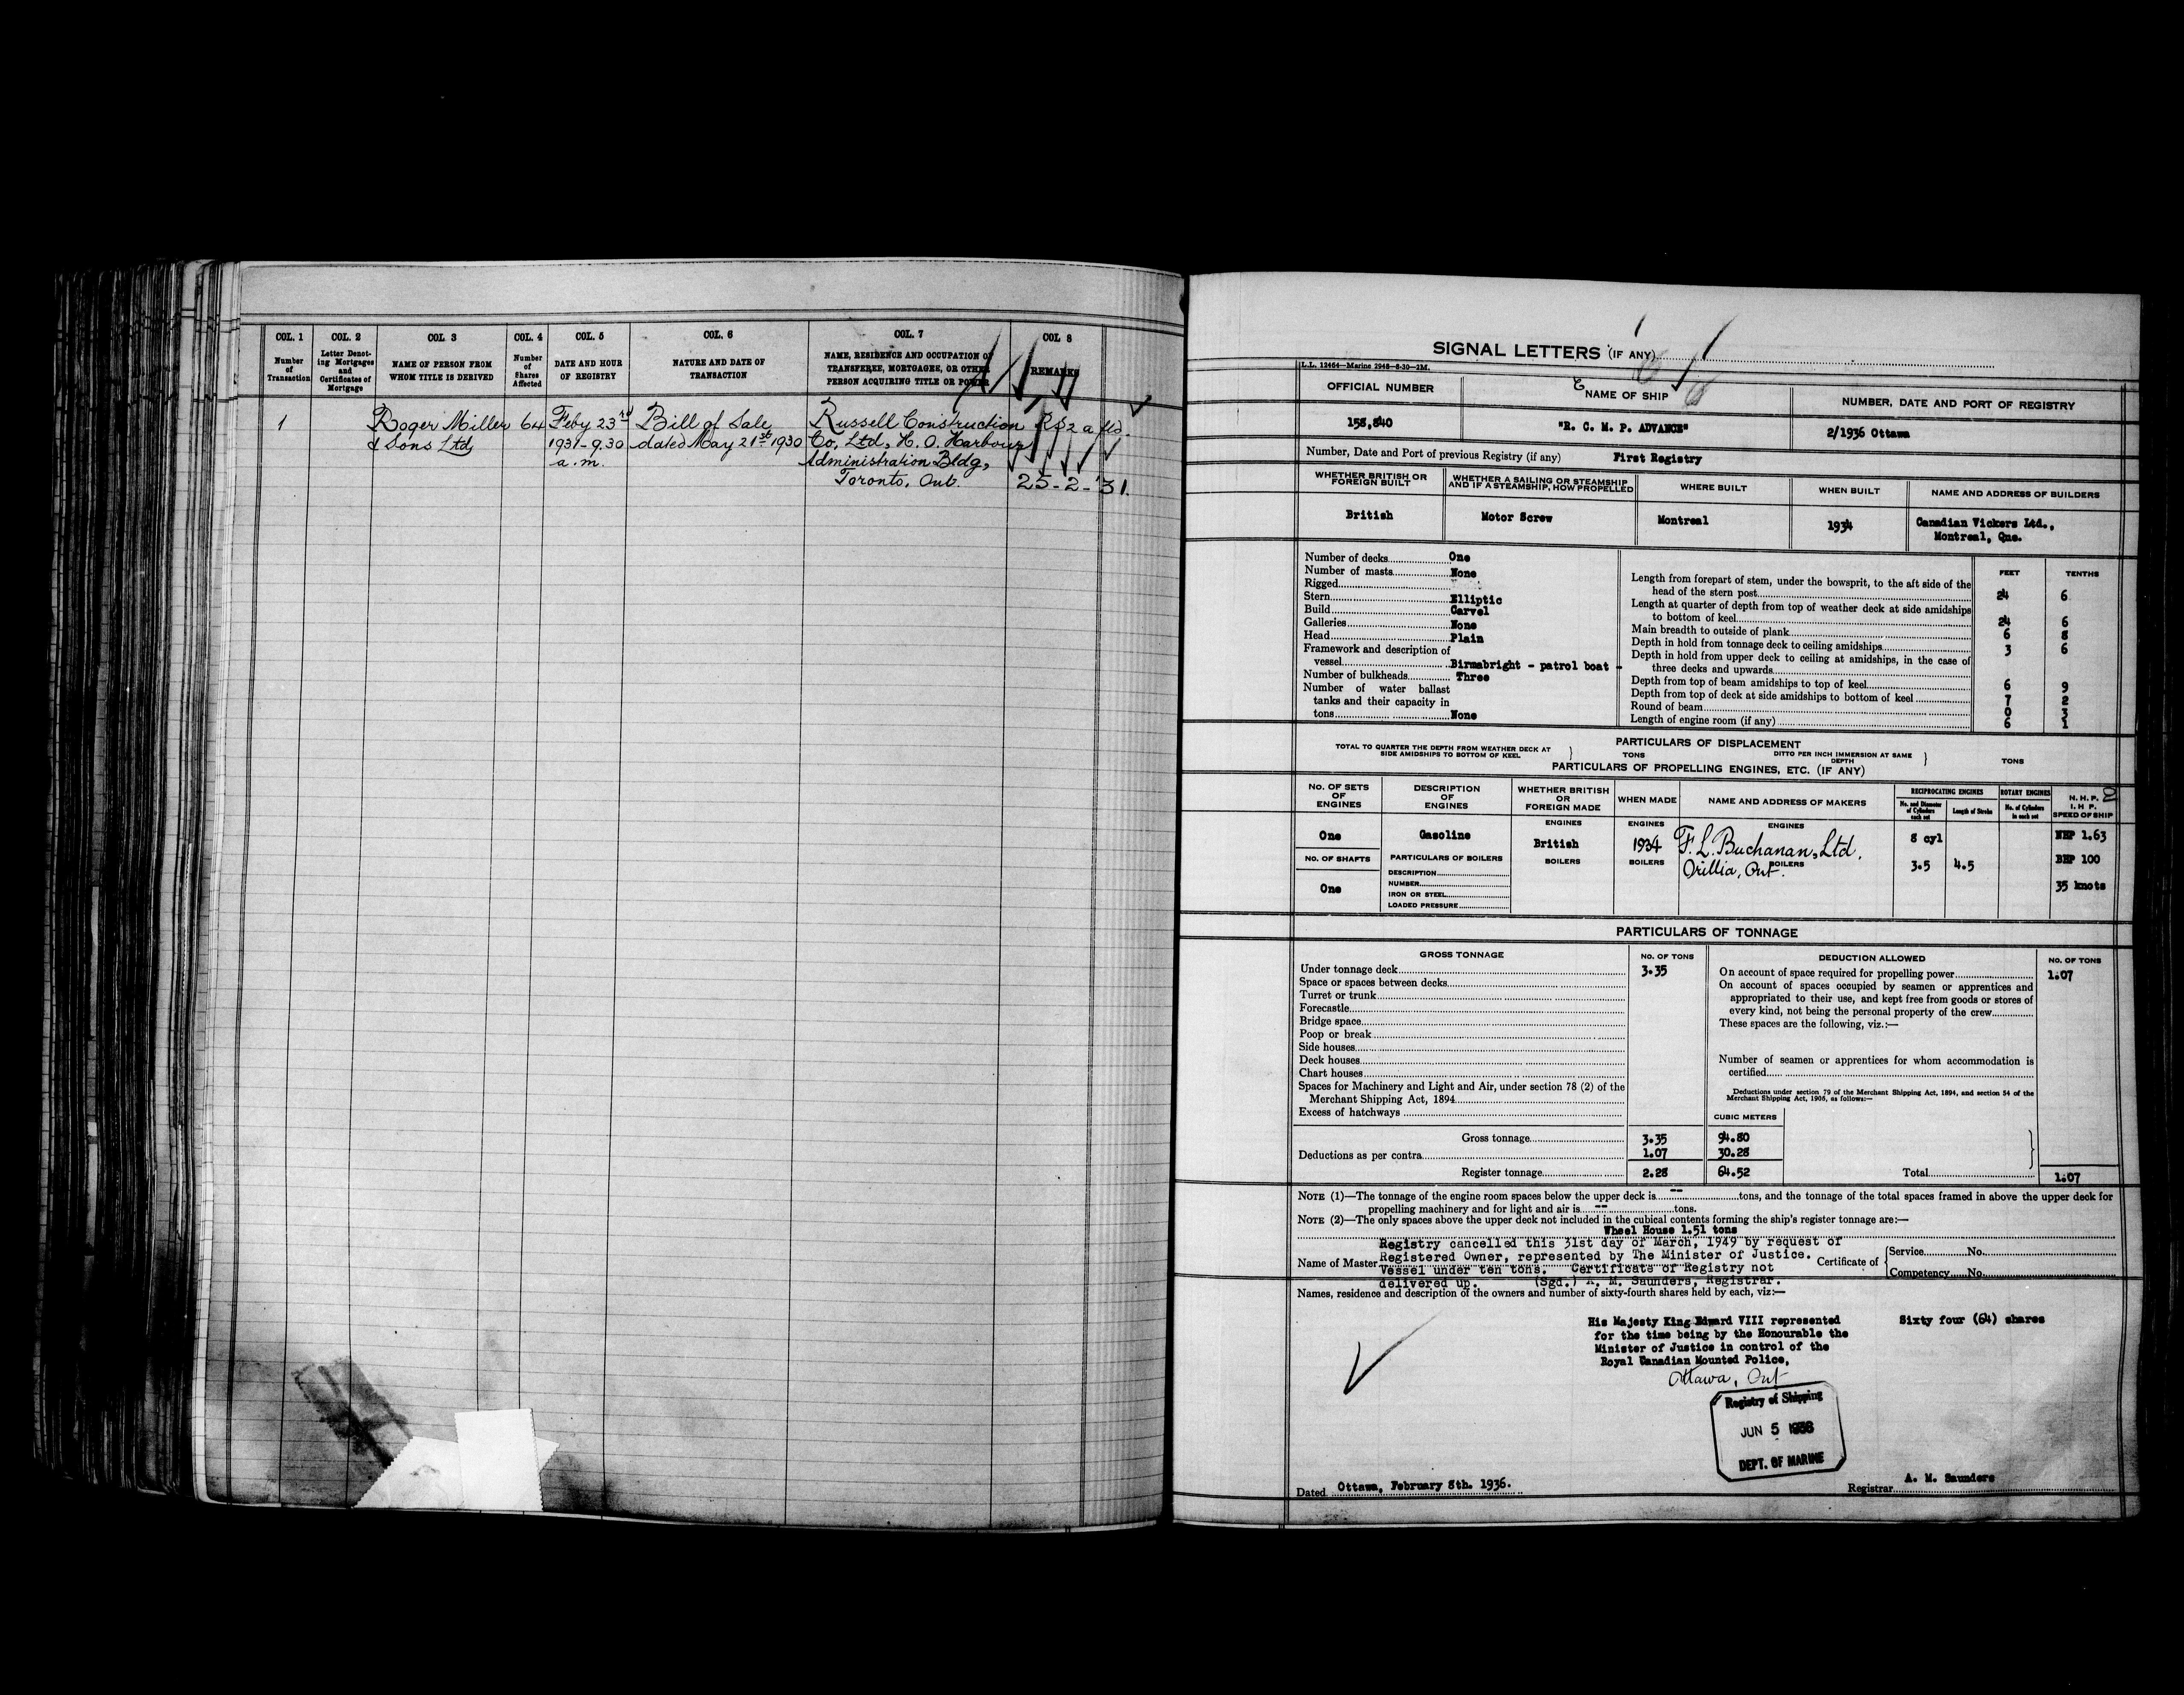 COL. 1
Number
of
Transaction
COL. 2
Letter Denot-
ing Mortgages
and
Certificates of
Mortgage
COL. 3
NAME OF PERSON FROM
WHOM TITLE IS DERIVED
COL. 4
Number
of
Shares
Affected
COL. 5
DATE AND HOUR
OF REGISTRY
COL. 6
NATURE AND DATE OF
TRANSACTION
COL. 7
NAME, RESIDENCE AND OCCUPATION OF
TRANSFEREE, MORTGAGEE, OR OTHER
PERSON ACQUIRING TITLE OR POWER
COL 8
REMARKS
1 Roger Miller 64 Feby 23rd Bill of Sale Russell Construction RS2a fld.
& Sons Ltd 1931-9.30 dated May 21st 1930 Co, Ltd, H. O. Harbour
a.m. Administration Bldg,
Toronto, Ont. 25-2-31.
SIGNAL LETTERS (IF ANY)
L.L. 12464—Marine 2948—8-30—2M.
OFFICIAL NUMBER
NAME OF SHIP
NUMBER, DATE AND PORT OF REGISTRY
158,840
"R. C. M. P. ADVANCE"
2/1936 Ottawa
Number, Date and Port of previous Registry (if any) First Registry
WHETHER BRITISH OR
FOREIGN BUILT
WHETHER A SAILING OR STEAMSHIP
AND IF A STEAMSHIP, HOW PROPELLED
WHERE BUILT
WHEN BUILT
NAME AND ADDRESS OF BUILDERS
British
Motor Screw
Montreal
1934
Canadian Vickers Ltd.,
Montreal, Que.
Number of decks One
Number of masts None
Rigged
Stern Elliptic
Build Carvel
Galleries None
Head Plain
Framework and description of
vessel Birmabright - patrol boat -
Number of bulkheads Three
Number of water ballast
tanks and their capacity in
tons None
FEET TENTHS
Length from forepart of stem, under the bowsprit, to the aft side of the
head of the stern post 24 6
Length at quarter of depth from top of weather deck at side amidships
to bottom of keel 24 6
Main breadth to outside of plank 6 8
Depth in hold from tonnage deck to ceiling amidships 3 6
Depth in hold from upper deck to ceiling at amidships, in the case of
three decks and upwards
Depth from top of beam amidships to top of keel 6 9
Depth from top of deck at side amidships to bottom of keel 7 2
Round of beam 0 3
Length of engine room (if any) 6 1
PARTICULARS OF DISPLACEMENT
TOTAL TO QUARTER THE DEPTH FROM WEATHER DECK AT
SIDE AMIDSHIPS TO BOTTOM OF KEEL
TONS
DITTO PER INCH IMMERSION AT SAME
DEPTH
TONS
PARTICULARS OF PROPELLING ENGINES, ETC. (IF ANY)
No. OF SETS
OF
ENGINES
DESCRIPTION
OF
ENGINES
WHETHER BRITISH
OR
FOREIGN MADE
WHEN MADE
NAME AND ADDRESS OF MAKERS
RECIPROCATING ENGINES
No. and Diameter
of Cylinders
each set
Length of Stroke
ROTARY ENGINES
No. of Cylinders
in each set
N. H. P.
I. H P.
SPEED OF SHIP
ENGINES
ENGINES
ENGINES
One
Gasoline
British
1934
F. L. Buchanan, Ltd,
Orillia, Ont.
8 cyl
NHP 1.63
No. OF SHAFTS
PARTICULARS OF BOILERS
BOILERS
BOILERS
BOILERS
3.5
4.5
BHP 100
One
DESCRIPTION
NUMBER
IRON OR STEEL
LOADED PRESSURE
35 knots
PARTICULARS OF TONNAGE
GROSS TONNAGE
No. OF TONS
DEDUCTION ALLOWED
No. OF TONS
Under tonnage deck 3.35
Space or spaces between decks
Turret or trunk
Forecastle
Bridge space
Poop or break
Side houses
Deck houses
Chart houses
Spaces for Machinery and Light and Air, under section 78 (2) of the
Merchant Shipping Act, 1894
Excess of hatchways
On account of space required for propelling power 1.07
On account of spaces occupied by seamen or apprentices and
appropriated to their use, and kept free from goods or stores of
every kind, not being the personal property of the crew
These spaces are the following, viz.:—
Number of seamen or apprentices for whom accommodation is
certified
Deductions under section 79 of the Merchant Shipping Act, 1894, and section 54 of the
Merchant Shipping Act, 1906, as follows:—
CUBIC METERS
Gross tonnage 3.35 94.80
Deductions as per contra 1.07 30.28
Register tonnage 2.28 64.52
Total 1.07
NOTE (1)—The tonnage of the engine room spaces below the upper deck is -- tons, and the tonnage of the total spaces framed in above the upper deck for
propelling machinery and for light and air is -- tons.
NOTE (2)—The only spaces above the upper deck not included in the cubical contents forming the ship's register tonnage are:—
Wheel House 1.51 tons
Registry cancelled this 31st day of March, 1949 by request of
Registered Owner, represented by The Minister of Justice.
Vessel under ten tons. Certificate of Registry not
delivered up. (Sgd.) A. M. Saunders, Registrar.
Name of Master
Certificate of
Service No.
Competency No.
Names, residence and description of the owners and number of sixty-fourth shares held by each, viz:—
His Majesty King Edward VIII represented
for the time being by the Honourable the
Minister of Justice in control of the
Royal Canadian Mounted Police,
Ottawa, Ont
Sixty four (64) shares
Registry of Shipping
JUN 5 1936
DEPT. OF MARINE
Dated Ottawa, February 8th. 1936.
A. M. Saunders
Registrar